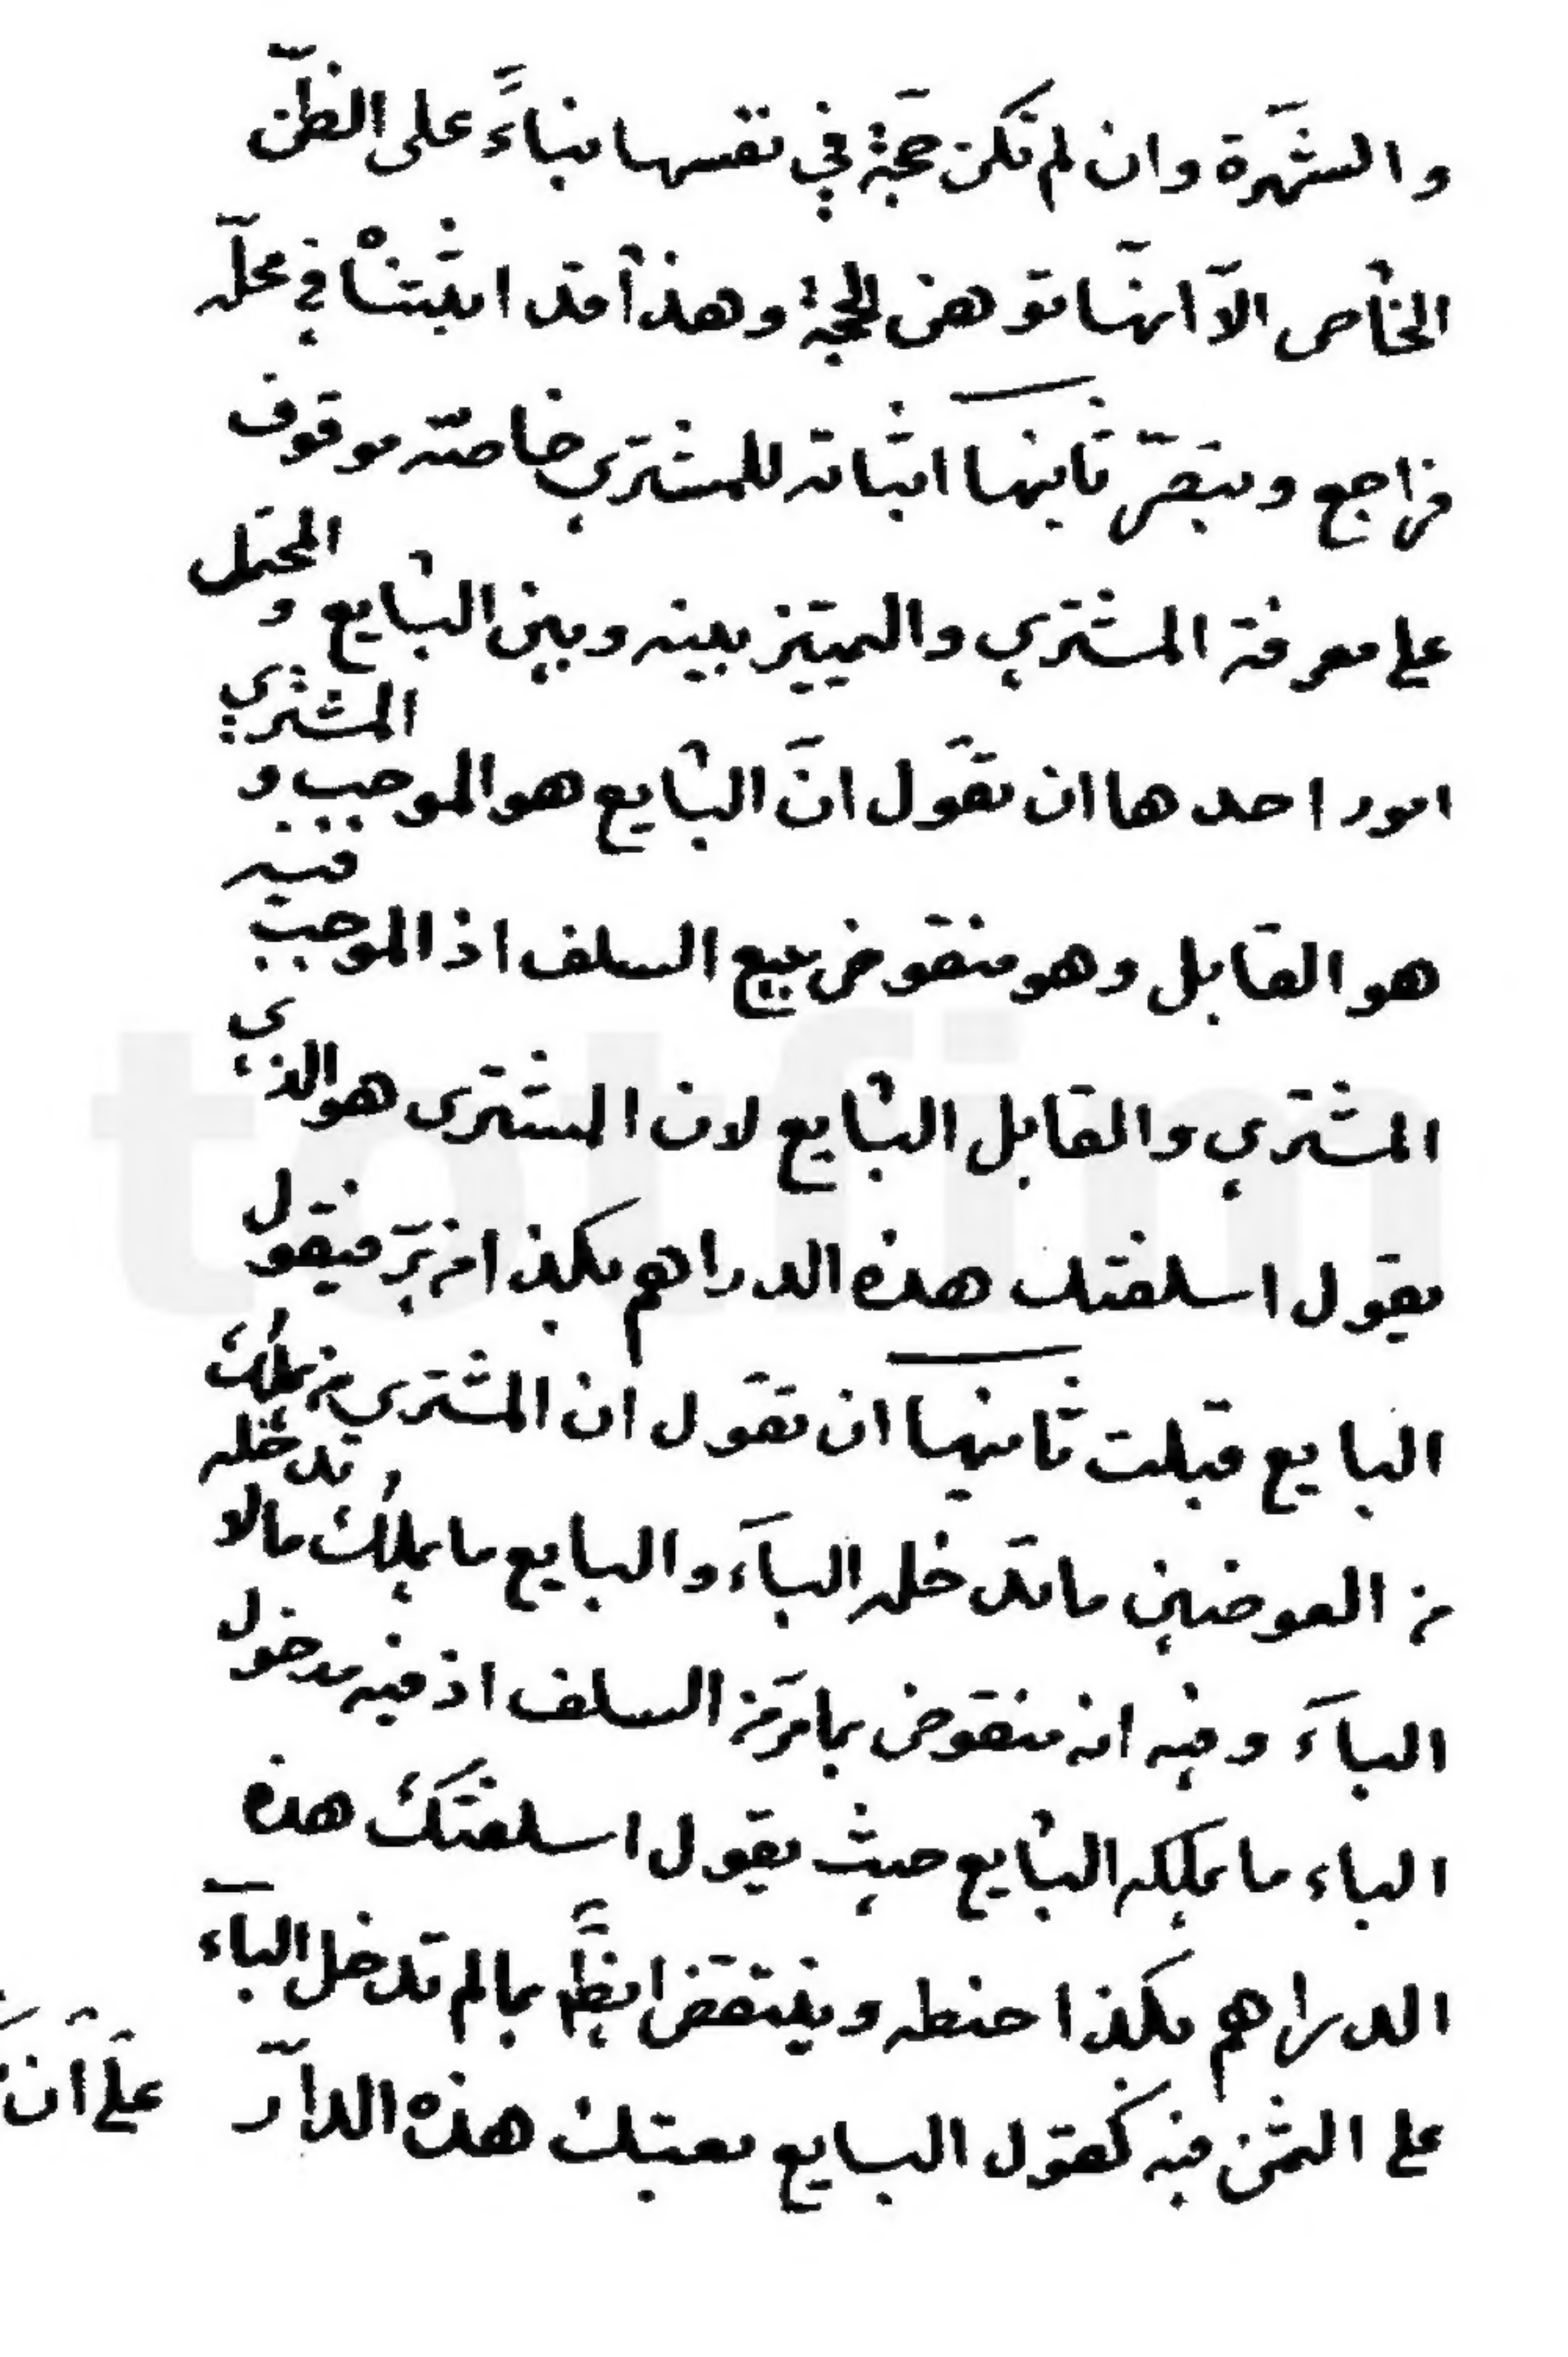 والشهرة وان لم تكن حجّة في نفسها بناءً على الظنّ
الخاص الّا انّها توهن الحجة وهذا قد اثبتناه في محلّه
فراجع وتبصّر ثانيها اثباته للمشتري خاصّة موقوف
على معرفة المشتري والتمييز بينه وبين البايع والمحتمل
امور احدها ان نقول انّ البايع هو الموجب والمشتري
هو القابل وهو منقوض ببيع السلف اذ الموجب فيه
المشتري والقابل البايع لان المشترى هو الذي
يقول اسلفتك هذه الدراهم بكذا من برّ فيقول
البايع قبلت ثانيها ان نقول ان المشتري من يملك
من العوضين ما تدخله الباء والبايع ما يملك ما لا تدخله
الباء وفيه انه منقوض بما مرّ من السلف اذ فيه مدخول
الباء ما يملكه البايع حيث يقول اسلفتك هذه
الدراهم بكذا حنطه وينتقض ايضاً بما لم تدخل الباء
على الثمن فيه كقول البايع بعتك هذه الدار على ان